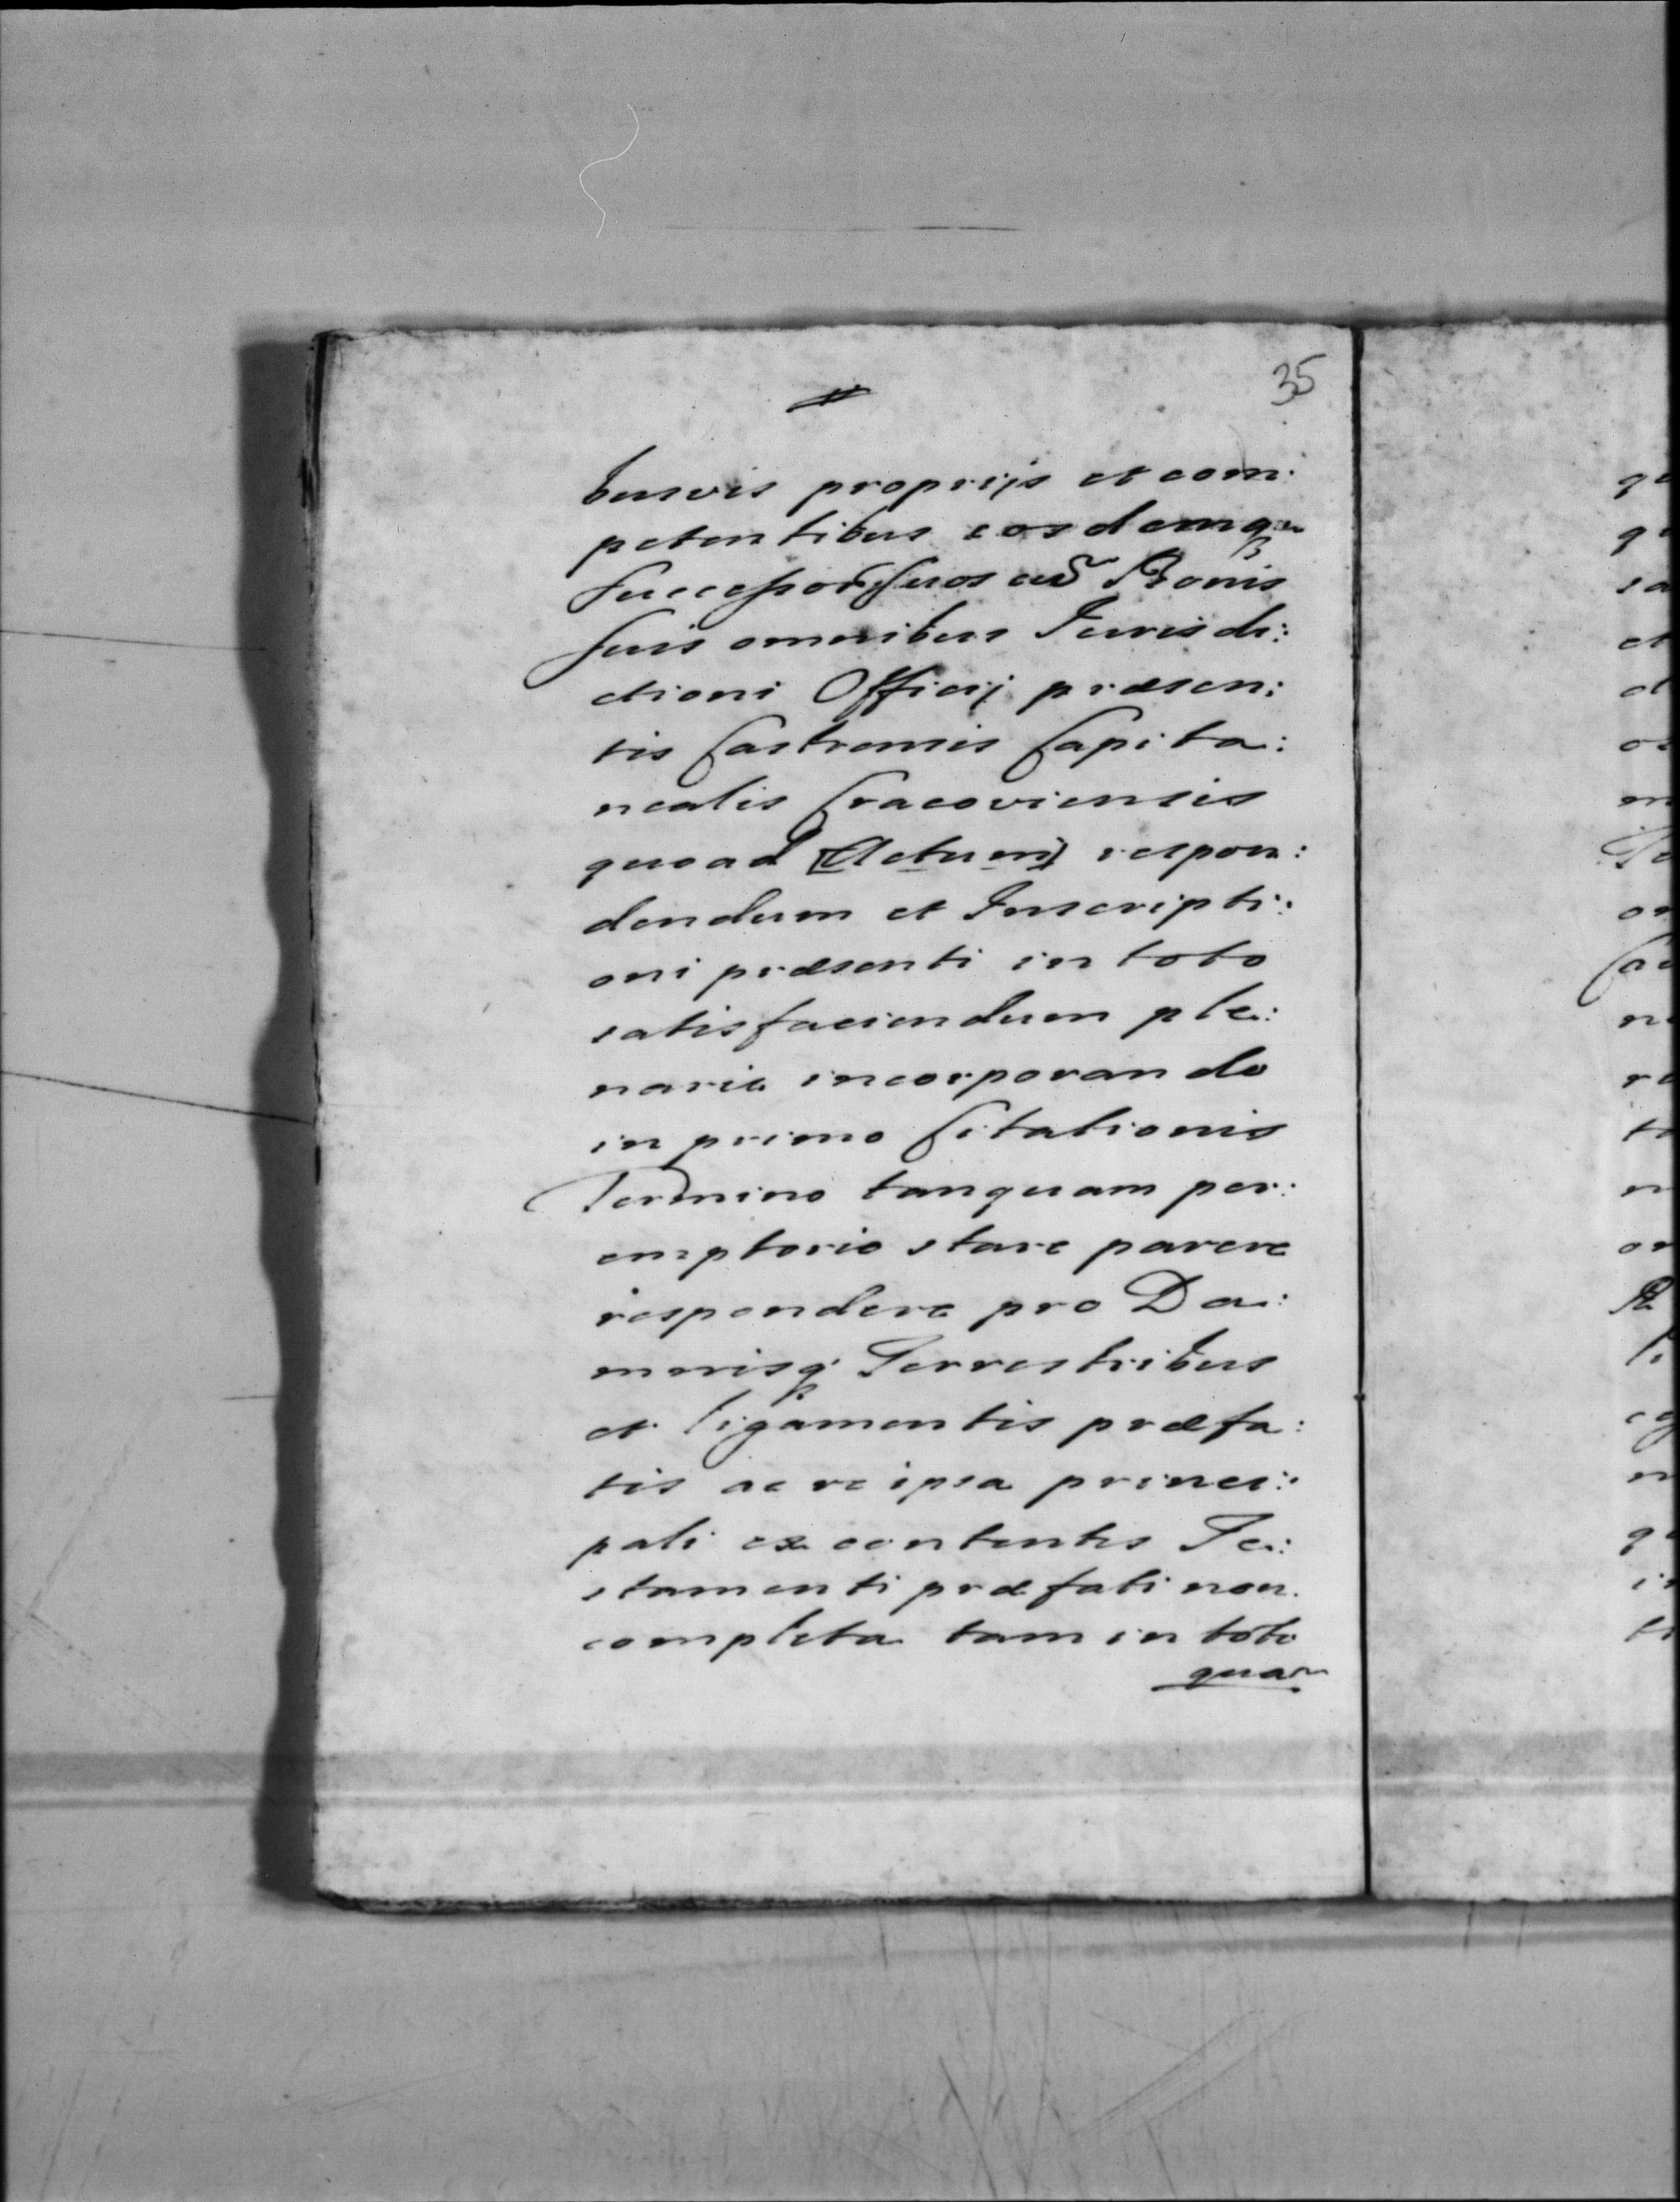 35
busvis proprijs et com:
petentibus eosdemq
Successor Suos cũ Bonis
Suis omnibus Jurisdi:
ctioni Officij præsen:
tis Castrensis Capita:
nealis Cracoviensis
quoad [Actum] respon:
dendum et Inscripti:
oni præsenti in toto
satisfaciendum ple:
narie incorporando
in primo Citationis
Termino tanquam per:
emptorio stare parere
respondere pro Da:
mnisq Terrestribus
et ligamentis præfa:
tis ac re ipsa princi:
pali ex contentis Te:
stamenti præfati non
completa tam in toto
quam
qu
qu
sa
et
m
Te
on
Ca
ne
m
on
in